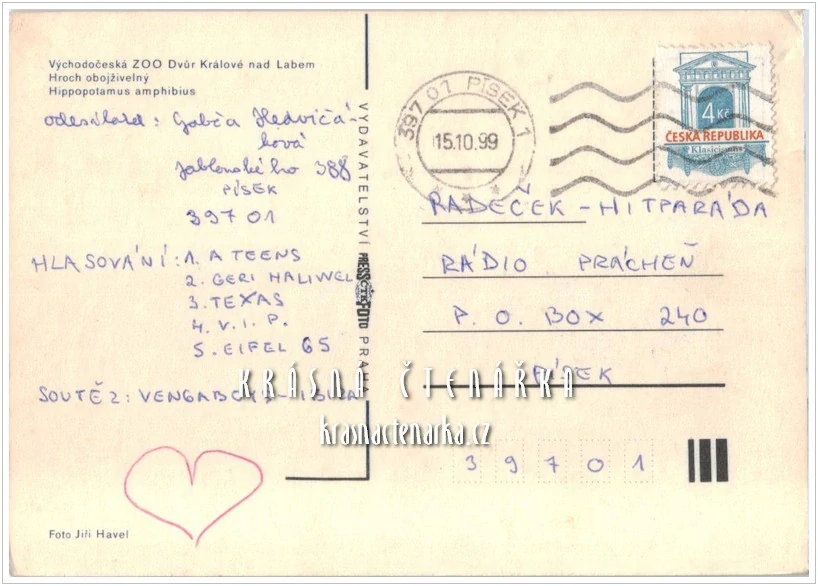 Východočeská ZOO Dvůr Králové nad Labem
Hroch obojživelný
Hippopotamus amphibius
odesílatel: Gabča Hedvičá-
ková
Jablonského 388
PÍSEK
397 01
HLASOVÁNÍ: 1. A TEENS
2. GERI HALIWEL
3. TEXAS
4. V. I. P.
5. EIFEL 65
SOUTĚŽ: VENGABOYS - IBIZA
Foto Jiří Havel
VYDAVATELSTVÍ PRESSFOTO PRAHA
ČTK
397 01 PÍSEK 1
15.10.99
4 Kč
ČESKÁ REPUBLIKA
Klasicismus
RADEČEK - HITPARÁDA
RÁDIO PRÁCHEŇ
P. O. BOX 240
PÍSEK
39701
KRÁSNÁ ČTENÁŘKA
krasnactenarka.cz